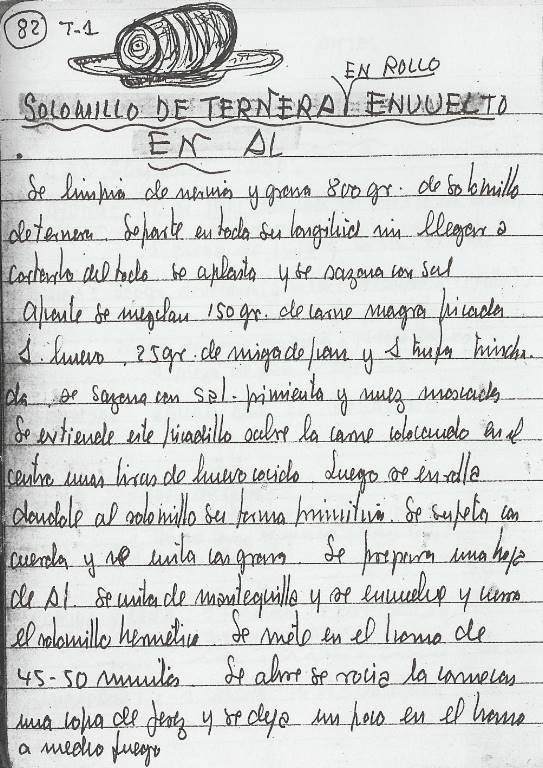 82 T-1
EN ROLLO
SOLOMILLO DE TERÑERA Y ENVUELTO
EN AL
Se limpia de nervios y grasa 800 gr. de solomillo
de ternera. Se parte en toda su longitud sin llegar a
cortarlo del todo se aplasta y se sazona con sal
Aparte se mezclan 150 gr. de carne magra picada
1. huevo, 25 gr. de miga de pan y 1 trufa trincha.
da, se sazona con sal. pimienta y nuez moscada
Se extiende este picadillo sobre la carne colocando en el
centro unas tiras de huevo cocido. Luego se enrolla
dandole al solomillo su forma primitiva. Se sujeta con
cuerda y se unta con grasa. Se prepara una hoja
de Al. Se unta de mantequilla y se envuelve y cierra
el solomillo hermético Se mete en el horno de
45-50 minutos Se abre se rocia la carne con
una copa de Jerez y se deja un poco en el horno
a medio fuego